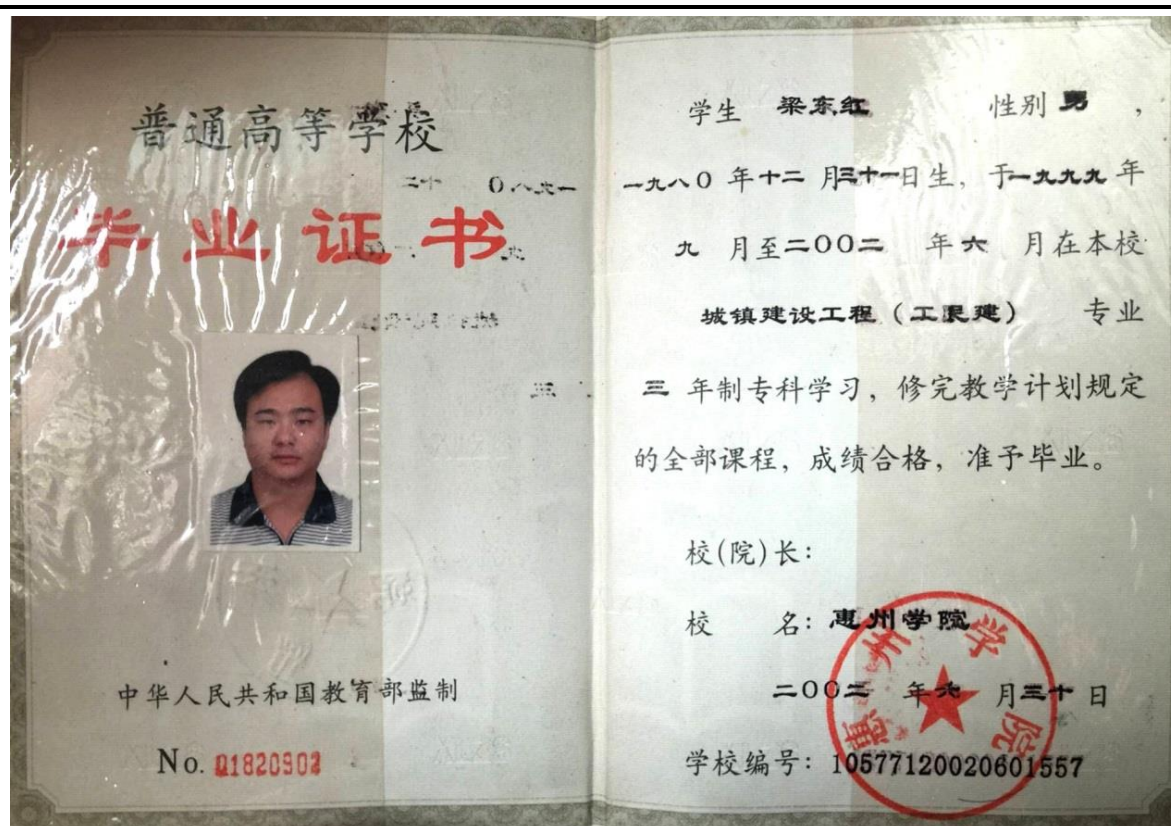 普通高等学校
毕业证书
中华人民共和国教育部监制
No. 01820902
学生 梁东红 性别 男 ，
一九八0 年十二 月三十一日生，于一九九九 年
九 月至二00二 年 六 月在本校
城镇建设工程（工民建） 专业
三 年制专科学习，修完教学计划规定
的全部课程，成绩合格，准予毕业。
校(院)长：
校 名：惠州学院
二00二 年 六 月三十 日
学校编号：10577120020601557
惠州学院